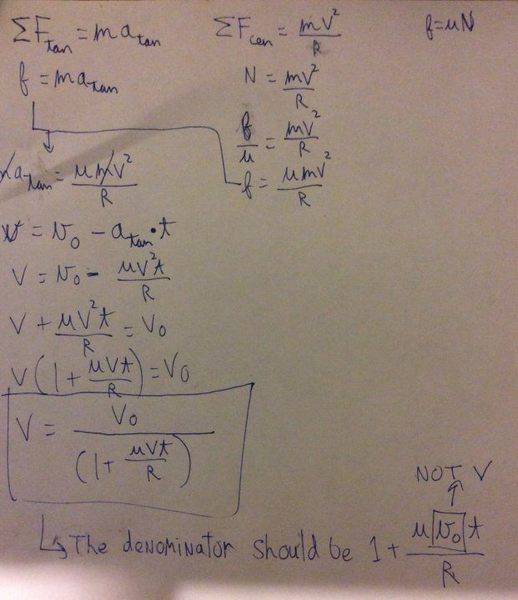 ΣF_tan = ma_tan
f = ma_tan
ΣF_cen = mv²/R
N = mv²/R
f/μ = mv²/R
f = μmv²/R
f = μN
ma_tan = μmv²/R
v = v₀ - a_tan·t
V = v₀ - μv²t/R
V + μv²t/R = V₀
V(1 + μVt/R) = V₀
V = V₀/(1 + μVt/R)
NOT V
↳ The denominator should be 1 + μv₀t/R